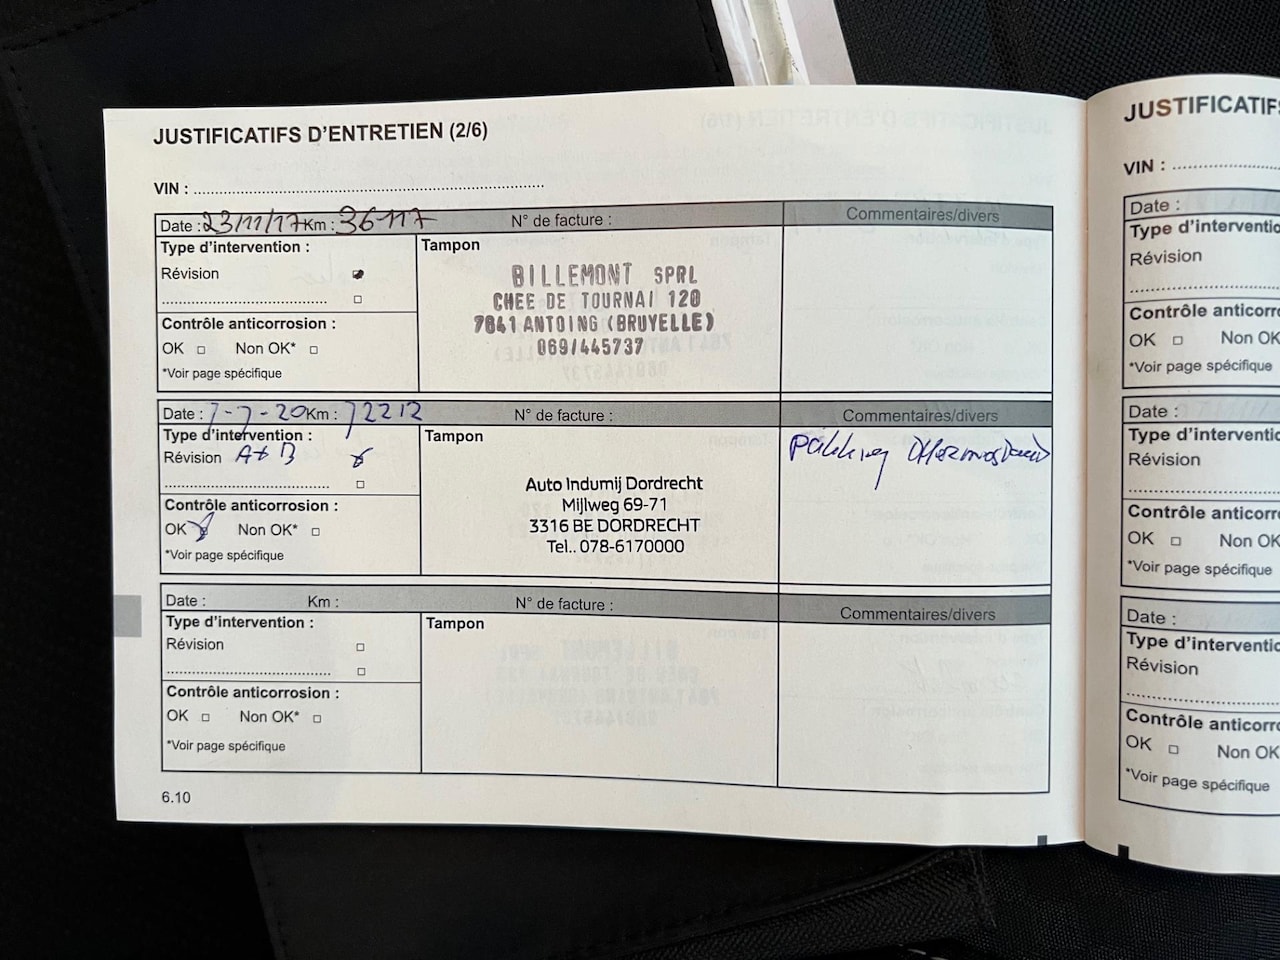 JUSTIFICATIFS D'ENTRETIEN (2/6)
VIN : ................................................................
Date : 23/11/17 Km : 36117 N° de facture : Commentaires/divers
Type d'intervention : Tampon
Révision
................................
BILLEMONT SPRL
CHEE DE TOURNAI 120
7641 ANTOING (BRUYELLE)
069/445737
Contrôle anticorrosion :
OK Non OK*
*Voir page spécifique
Date : 7-7-20 Km : 72212 N° de facture : Commentaires/divers
Type d'intervention : Tampon
Révision A+B
................................
Pakking
Auto Indumij Dordrecht
Mijlweg 69-71
3316 BE DORDRECHT
Tel.. 078-6170000
Contrôle anticorrosion :
OK Non OK*
*Voir page spécifique
Date : Km : N° de facture : Commentaires/divers
Type d'intervention : Tampon
Révision
................................
Contrôle anticorrosion :
OK Non OK*
*Voir page spécifique
6.10
JUSTIFICATIFS
VIN : ................
Date :
Type d'interventio
Révision
................
Contrôle anticorro
OK Non OK
*Voir page spécifique
Date :
Type d'interventio
Révision
................
Contrôle anticorro
OK Non OK
*Voir page spécifique
Date :
Type d'interventio
Révision
................
Contrôle anticorro
OK Non OK
*Voir page spécifique